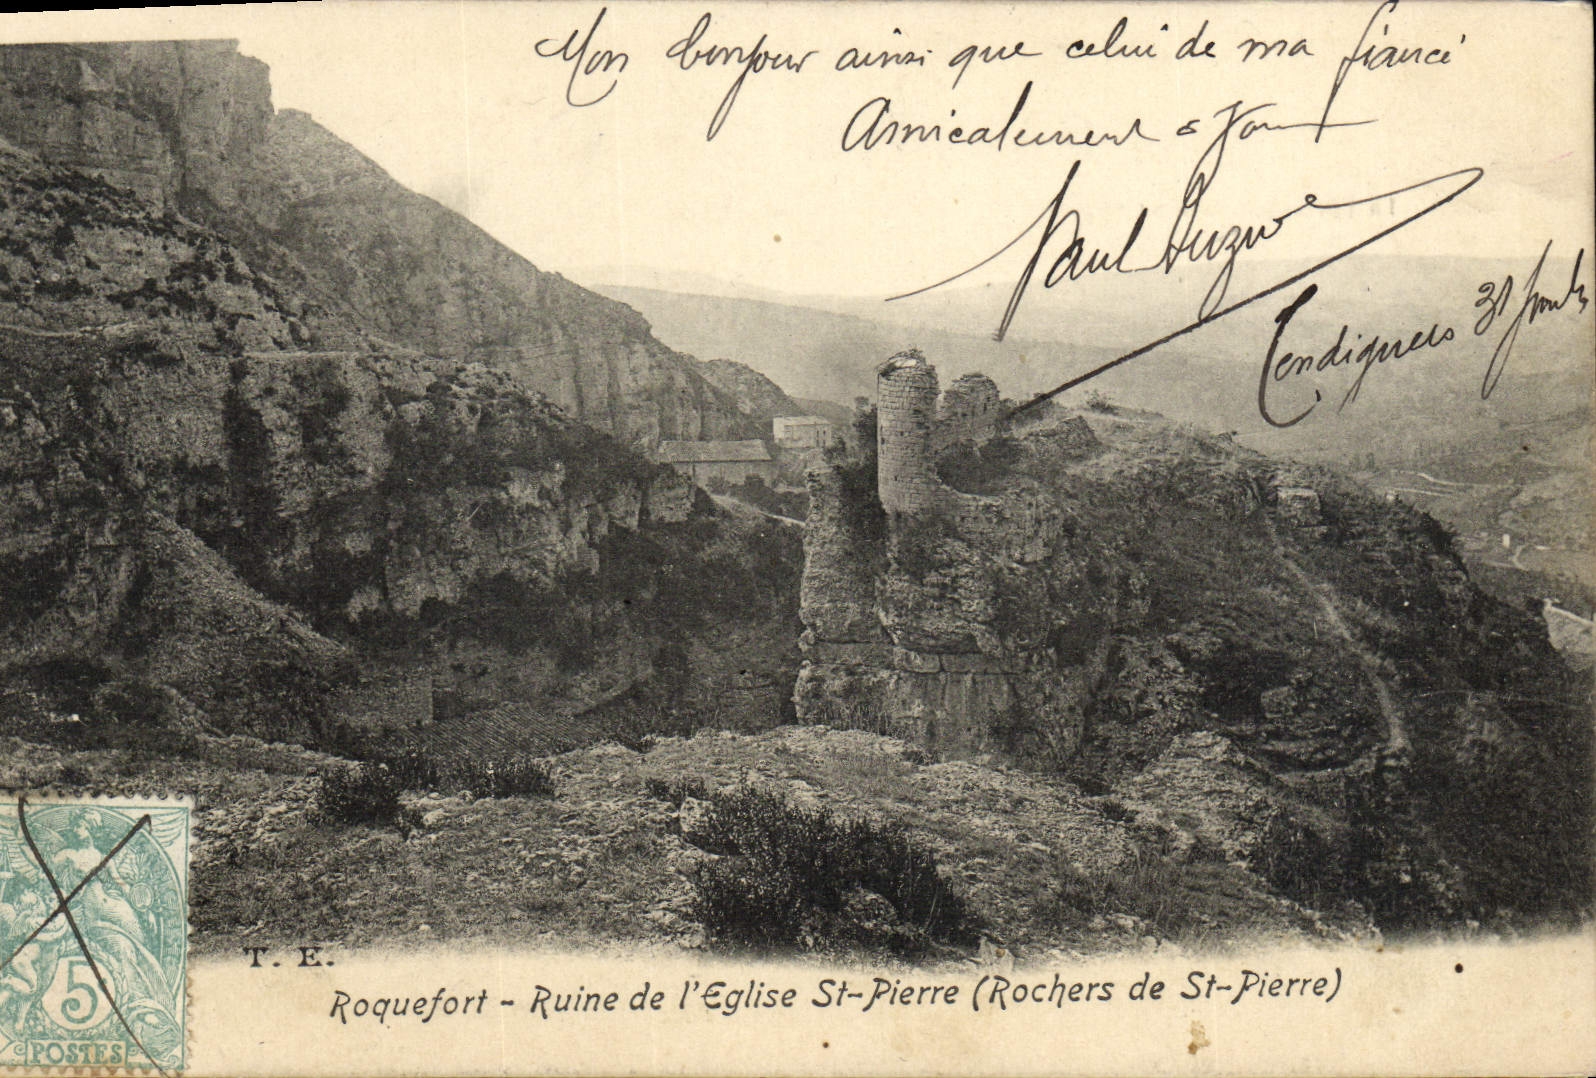 Mon bonjour ainsi que celui de ma fiancé
Amicalement
Paul
31
T. E.
Roquefort - Ruine de l'Eglise St-Pierre (Rochers de St-Pierre)
5
POSTES